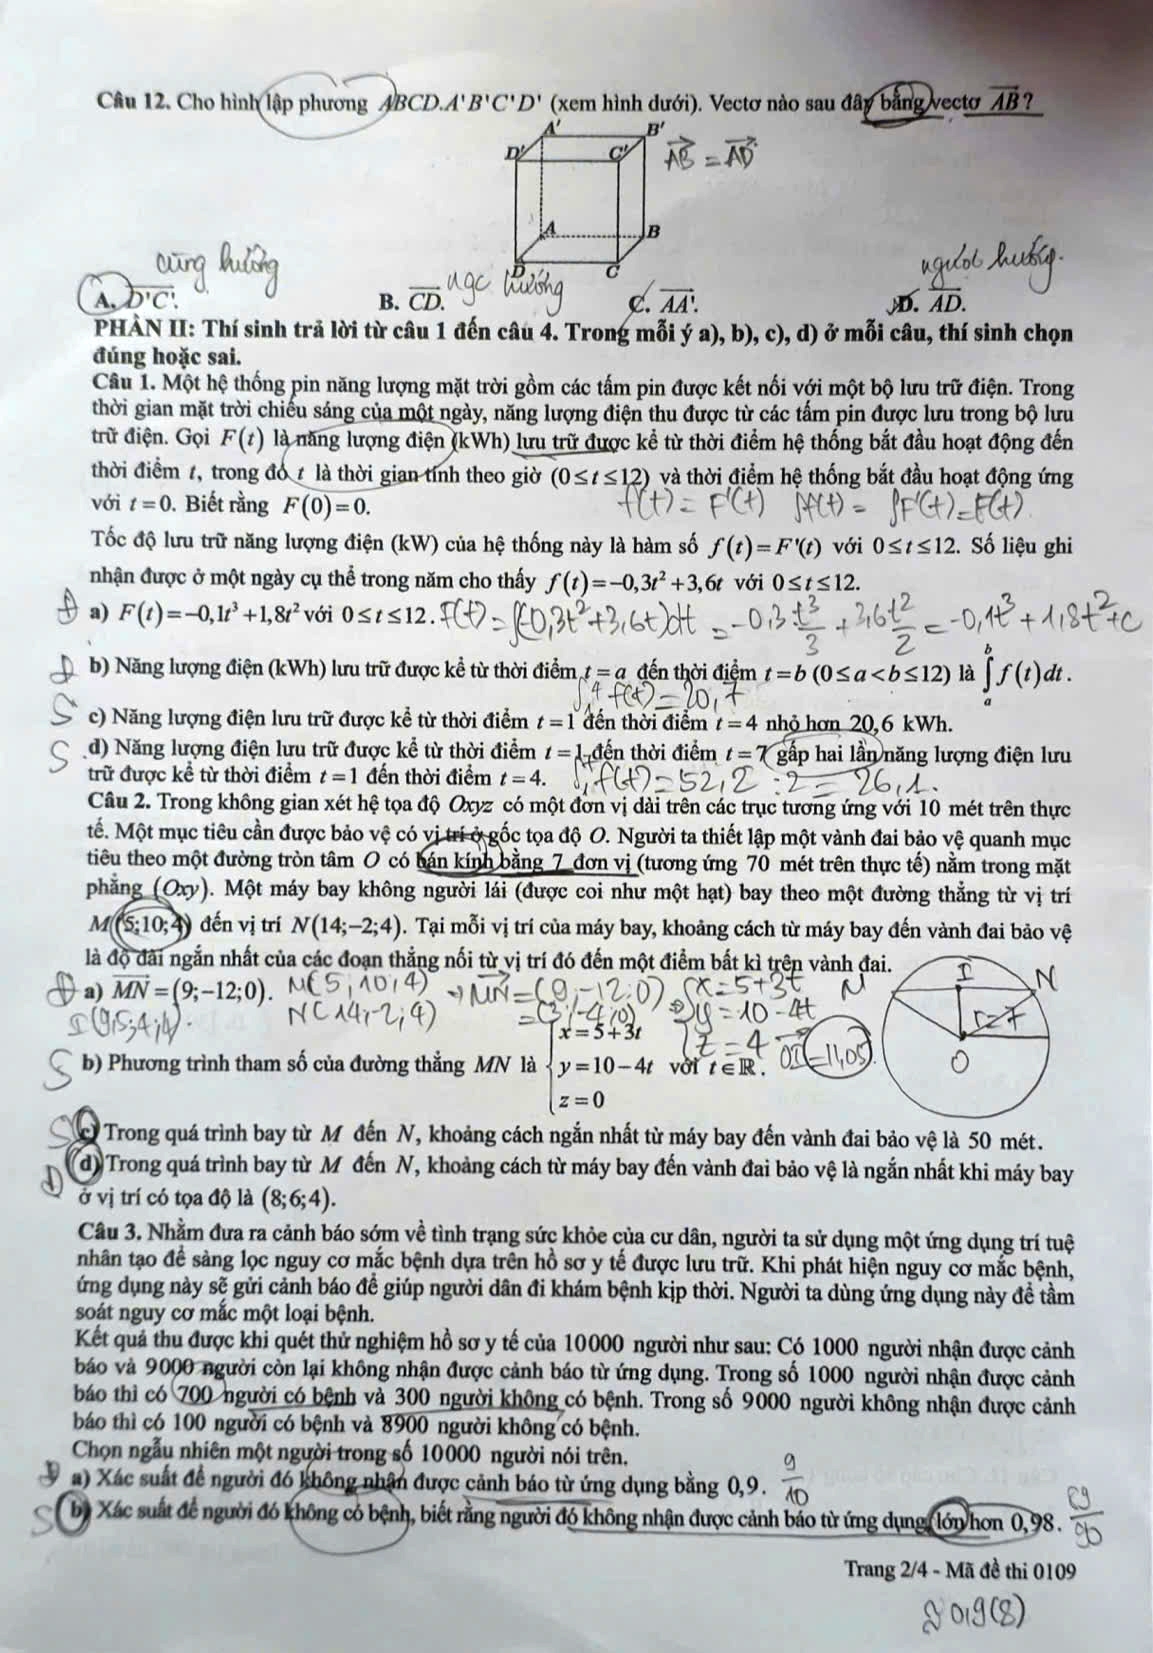 Câu 12. Cho hình lập phương ABCD.A'B'C'D' (xem hình dưới). Vectơ nào sau đây bằng vectơ AB?
A' B'
D' C'
AB = AD
A B
D C
cùng hướng ngc hướng ngược hướng.
A. D'C'. B. CD. C. AA'. D. AD.
PHẦN II: Thí sinh trả lời từ câu 1 đến câu 4. Trong mỗi ý a), b), c), d) ở mỗi câu, thí sinh chọn
đúng hoặc sai.
Câu 1. Một hệ thống pin năng lượng mặt trời gồm các tấm pin được kết nối với một bộ lưu trữ điện. Trong
thời gian mặt trời chiếu sáng của một ngày, năng lượng điện thu được từ các tấm pin được lưu trong bộ lưu
trữ điện. Gọi F(t) là năng lượng điện (kWh) lưu trữ được kể từ thời điểm hệ thống bắt đầu hoạt động đến
thời điểm t, trong đó t là thời gian tính theo giờ (0≤t≤12) và thời điểm hệ thống bắt đầu hoạt động ứng
với t=0. Biết rằng F(0)=0.
f(t) = F'(t) ∫f(t) = ∫F'(t)=F(t)
Tốc độ lưu trữ năng lượng điện (kW) của hệ thống này là hàm số f(t)=F'(t) với 0≤t≤12. Số liệu ghi
nhận được ở một ngày cụ thể trong năm cho thấy f(t)=-0,3t²+3,6t với 0≤t≤12.
Đ a) F(t)=-0,1t³+1,8t² với 0≤t≤12. F(t)=∫(-0,3t²+3,6t)dt = -0,3 t³/3 + 3,6 t²/2 = -0,1t³+1,8t²+C
Đ b) Năng lượng điện (kWh) lưu trữ được kể từ thời điểm t=a đến thời điểm t=b (0≤a<b≤12) là ∫ₐᵇ f(t)dt.
∫₁⁴ f(t)=20,7
S c) Năng lượng điện lưu trữ được kể từ thời điểm t=1 đến thời điểm t=4 nhỏ hơn 20,6 kWh.
S d) Năng lượng điện lưu trữ được kể từ thời điểm t=1 đến thời điểm t=7 gấp hai lần năng lượng điện lưu
trữ được kể từ thời điểm t=1 đến thời điểm t=4. ∫₁⁷ f(t)=52,2 :2 = 26,1.
Câu 2. Trong không gian xét hệ tọa độ Oxyz có một đơn vị dài trên các trục tương ứng với 10 mét trên thực
tế. Một mục tiêu cần được bảo vệ có vị trí ở gốc tọa độ O. Người ta thiết lập một vành đai bảo vệ quanh mục
tiêu theo một đường tròn tâm O có bán kính bằng 7 đơn vị (tương ứng 70 mét trên thực tế) nằm trong mặt
phẳng (Oxy). Một máy bay không người lái (được coi như một hạt) bay theo một đường thẳng từ vị trí
M(5;10;4) đến vị trí N(14;-2;4). Tại mỗi vị trí của máy bay, khoảng cách từ máy bay đến vành đai bảo vệ
là độ dài ngắn nhất của các đoạn thẳng nối từ vị trí đó đến một điểm bất kì trên vành đai.
Đ a) MN=(9;-12;0). M(5;10;4) → MN=(9;-12;0) x=5+3t M I N
I(9,5;4;4). N(14;-2;4) =(3;-4;0) ⇒ y=10-4t r=7
z=4 OI=11,05 O
S b) Phương trình tham số của đường thẳng MN là { x=5+3t
y=10-4t với t∈ℝ.
z=0
S c) Trong quá trình bay từ M đến N, khoảng cách ngắn nhất từ máy bay đến vành đai bảo vệ là 50 mét.
Đ d) Trong quá trình bay từ M đến N, khoảng cách từ máy bay đến vành đai bảo vệ là ngắn nhất khi máy bay
ở vị trí có tọa độ là (8;6;4).
Câu 3. Nhằm đưa ra cảnh báo sớm về tình trạng sức khỏe của cư dân, người ta sử dụng một ứng dụng trí tuệ
nhân tạo để sàng lọc nguy cơ mắc bệnh dựa trên hồ sơ y tế được lưu trữ. Khi phát hiện nguy cơ mắc bệnh,
ứng dụng này sẽ gửi cảnh báo để giúp người dân đi khám bệnh kịp thời. Người ta dùng ứng dụng này để tầm
soát nguy cơ mắc một loại bệnh.
Kết quả thu được khi quét thử nghiệm hồ sơ y tế của 10000 người như sau: Có 1000 người nhận được cảnh
báo và 9000 người còn lại không nhận được cảnh báo từ ứng dụng. Trong số 1000 người nhận được cảnh
báo thì có 700 người có bệnh và 300 người không có bệnh. Trong số 9000 người không nhận được cảnh
báo thì có 100 người có bệnh và 8900 người không có bệnh.
Chọn ngẫu nhiên một người trong số 10000 người nói trên.
Đ a) Xác suất để người đó không nhận được cảnh báo từ ứng dụng bằng 0,9. 9/10
S b) Xác suất để người đó không có bệnh, biết rằng người đó không nhận được cảnh báo từ ứng dụng lớn hơn 0,98. 89/90
Trang 2/4 - Mã đề thi 0109
≈ 0,9(8)